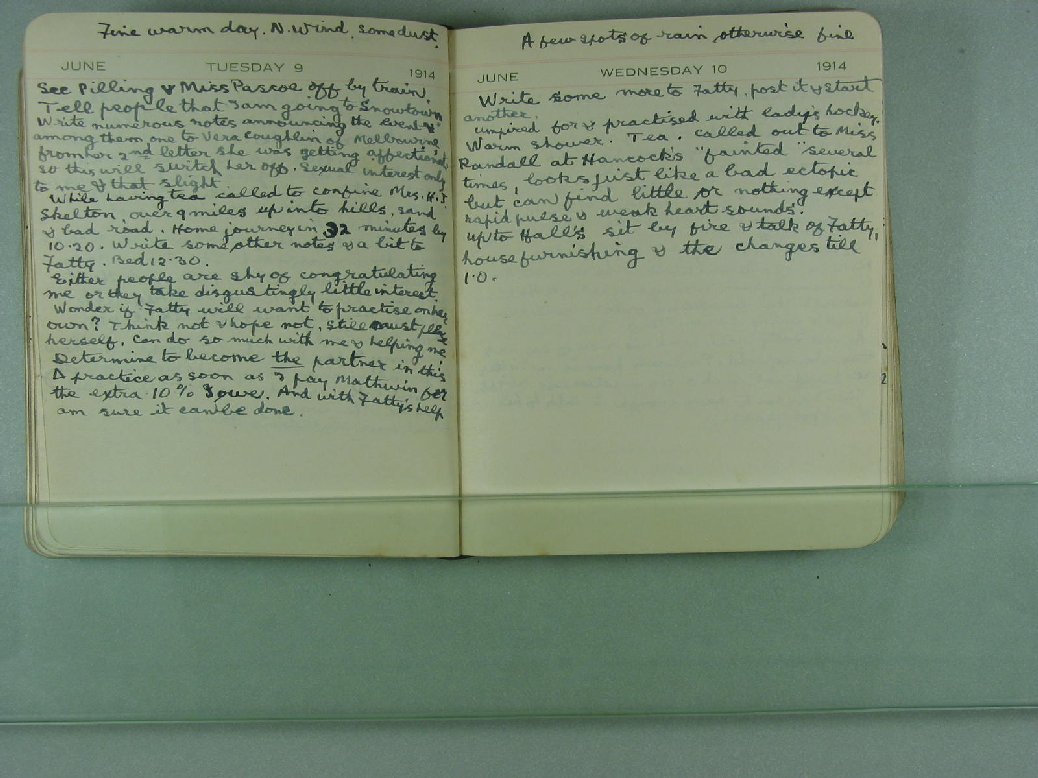 Fine warm day. N. Wind, some dust.
JUNE TUESDAY 9 1914
See Pilling & Miss Pascoe off by train.
Tell people that I am going to Snowtown
Write numerous notes announcing the event &
among them one to Vera Coughlin of Melbourne
from her 2nd letter she was getting affectionate
so this will switch her off. Sexual interest only
to me & that slight.
While having tea called to confine Mrs. H.J
Skelton, over 9 miles up into hills, sand
& bad road. Home journey in 32 minutes by
10.20. Write some other notes & a bit to
Fatty. Bed 12.30.
Either people are shy of congratulating
me or they take disgustingly little interest.
Wonder if Fatty will want to practise on her
own? Think not & hope not, still must
herself. Can do so much with me & helping me
Determine to become the partner in this
practice as soon as I pay Mathwin for
the extra 10% I owe. And with Fatty's help
am sure it can be done.
A few spots of rain otherwise fine
JUNE WEDNESDAY 10 1914
Write some more to Fatty, post it & start
another.
Umpired for & practised with lady's hockey.
Warm shower. Tea. Called out to Miss
Randall at Hancock's "fainted" several
times, looks just like a bad ectopic
but can find little or nothing except
rapid pulse & weak heart sounds.
Up to Hall's sit by fire & talk of Fatty,
house furnishing & the changes till
1.0.